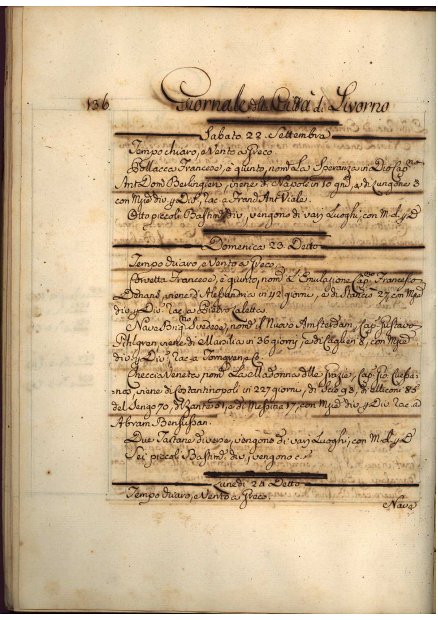 136 Giornale della Città di Livorno
Sabato 22 Settembre
Tempo chiaro, e Vento a Greco
Pollacca Francese, è giunto, nom.ta La Speranza in Dio Cap.no
Ant. Dom. Berlingieri, viene di Napoli in 10 gni, e di Longone 3
con Mzie div. p Div. rac. a Franc. Ant. Viale.
Otto piccoli Bastim. div. vengono di varj Luoghi, con M. d. p D
Domenica 23 Detto
Tempo chiaro, e Vento a Greco
Corvetta Francese, è giunto, nom.ta L'Emulazione Cap.no Francesco
viene d'Alessandria in 42 giorni, e di Stancio 27 con Mzie
div. p Div. rac. a Calotta
Nave Svezese, nom. il Nuovo Amsterdam, Cap. Gustavo
Pihlgren viene di Marsilia in 36 giorni, e di Cagliari 8, con Mzie
div. p Div. rac. a
Checcia Veneta nom. La Madonna delle Grazie, Cap.
viene di Costantinopoli in 227 giorni, di Scio 98, di 85
del 70, di Zante 51, e di Messina 17, con Mzie div. p Div. rac. a
Abram Bensussan.
Due Tartane diverse, vengono di varj Luoghi, con M. d. p D
Sei piccoli Bastim. div. vengono c.s
Lunedì 24 Detto
Tempo chiaro, e Vento a Greco.
Nave